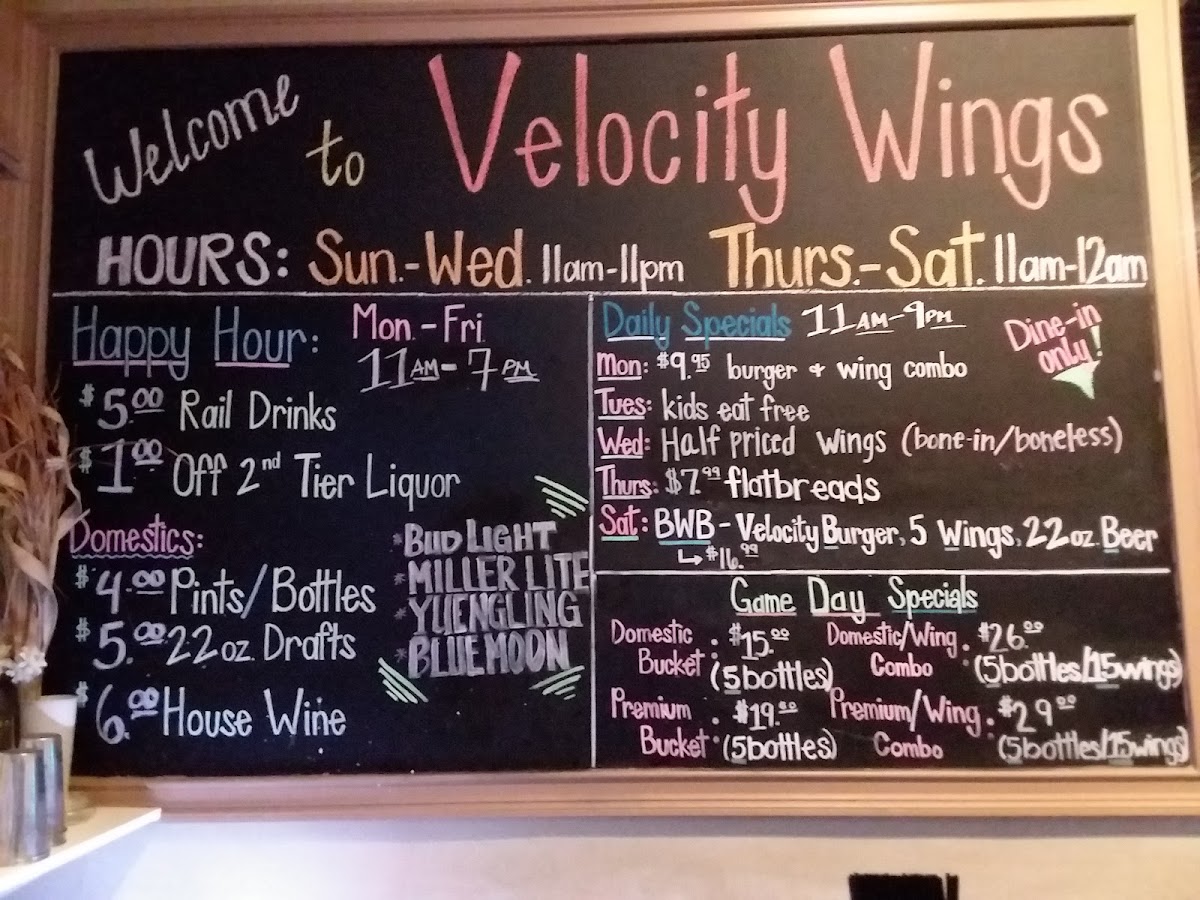 Welcome to Velocity Wings
HOURS: Sun.-Wed. 11am-11pm Thurs.-Sat. 11am-12am
Happy Hour: Mon.-Fri.
11AM-7PM
$5.00 Rail Drinks
$1.00 Off 2nd Tier Liquor
Domestics:
$4.00 Pints/Bottles
$5.00 22oz. Drafts
$6.00 House Wine
*BUD LIGHT
*MILLER LITE
*YUENGLING
*BLUE MOON
Daily Specials 11AM-9PM
Dine-in
only!
Mon: $9.95 burger & wing combo
Tues: kids eat free
Wed: Half priced wings (bone-in/boneless)
Thurs: $7.99 flatbreads
Sat: BWB - Velocity Burger, 5 Wings, 22oz. Beer
$16.99
Game Day Specials
Domestic Bucket : $15.00 (5bottles)
Domestic/Wing Combo : $26.00 (5bottles/15wings)
Premium Bucket : $19.00 (5bottles)
Premium/Wing Combo : $29.00 (5bottles/15wings)